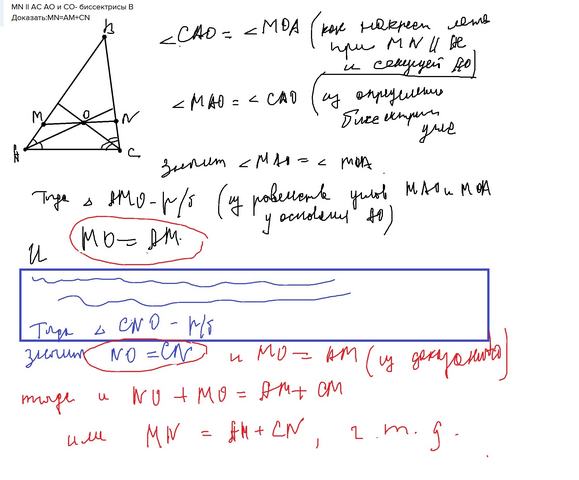 MN ll AC AO и CO- биссектрисы B
Доказать:MN=AM+CN
B
M
O
N
A
C
∠CAO = ∠MOA (как накрест леж
при MN || AC
и секущей AO)
∠MAO = ∠CAO (из определения
биссектрисы
угла
значит ∠MAO = ∠MOA
Тогда △ AMO - р/б (из равенств углов MAO и MOA
у основания AO)
И MO = AM.
Тогда △ CNO - р/б
значит NO = CN и MO = AM (из доказанного)
тогда и NO + MO = AM + CM
или MN = AM + CN, ч.т.д.